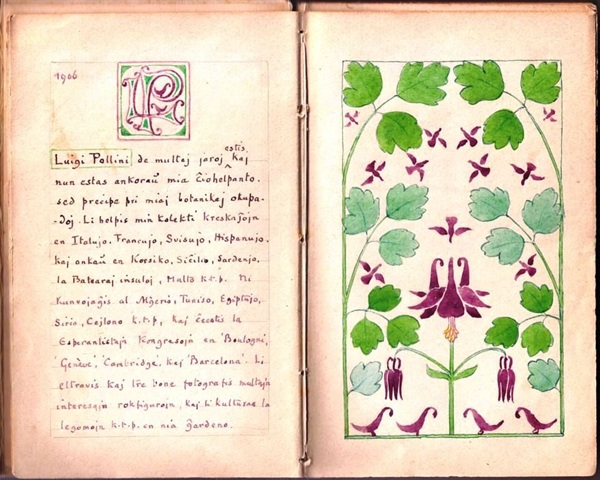 1906
LP
estis
Luigi Pollini de multaj jaroj kaj
nun estas ankoraŭ mia ĉiohelpanto.
sed precipe pri miaj botanikaj okupa-
-doj. Li helpis min kolekti kreskaĵojn
en Italujo, Francujo, Svisujo, Hispanujo,
kaj ankaŭ en Korsiko, Siĉilio, Sardenjo,
la Balearaj insuloj, Malta k.t.p. Ni
kunvojaĝis al Alĝerio, Tuniso, Egiptujo,
Sirio, Cejlono k.t.p, kaj ĉeestis la
Esperantistajn Kongresojn en 'Boulogne,
'Genève', 'Cambridge', kaj 'Barcelona'. Li
eltrovis kaj tre bone fotografis multajn
interesajn rokfigurojn, kaj li kulturas la
legomojn k.t.p. en nia ĝardeno.